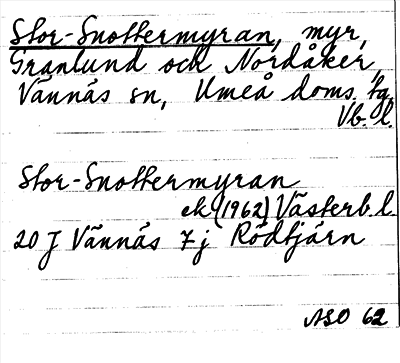 Stor-Snottermyran, myr,
Granlund och Nordåker,
Vännäs sn, Umeå doms. tg
Vb. l.
Stor-Snottermyran
ek (1962) Västerb. l.
20 J Vännäs 7 j Rödtjärn
ASO 62